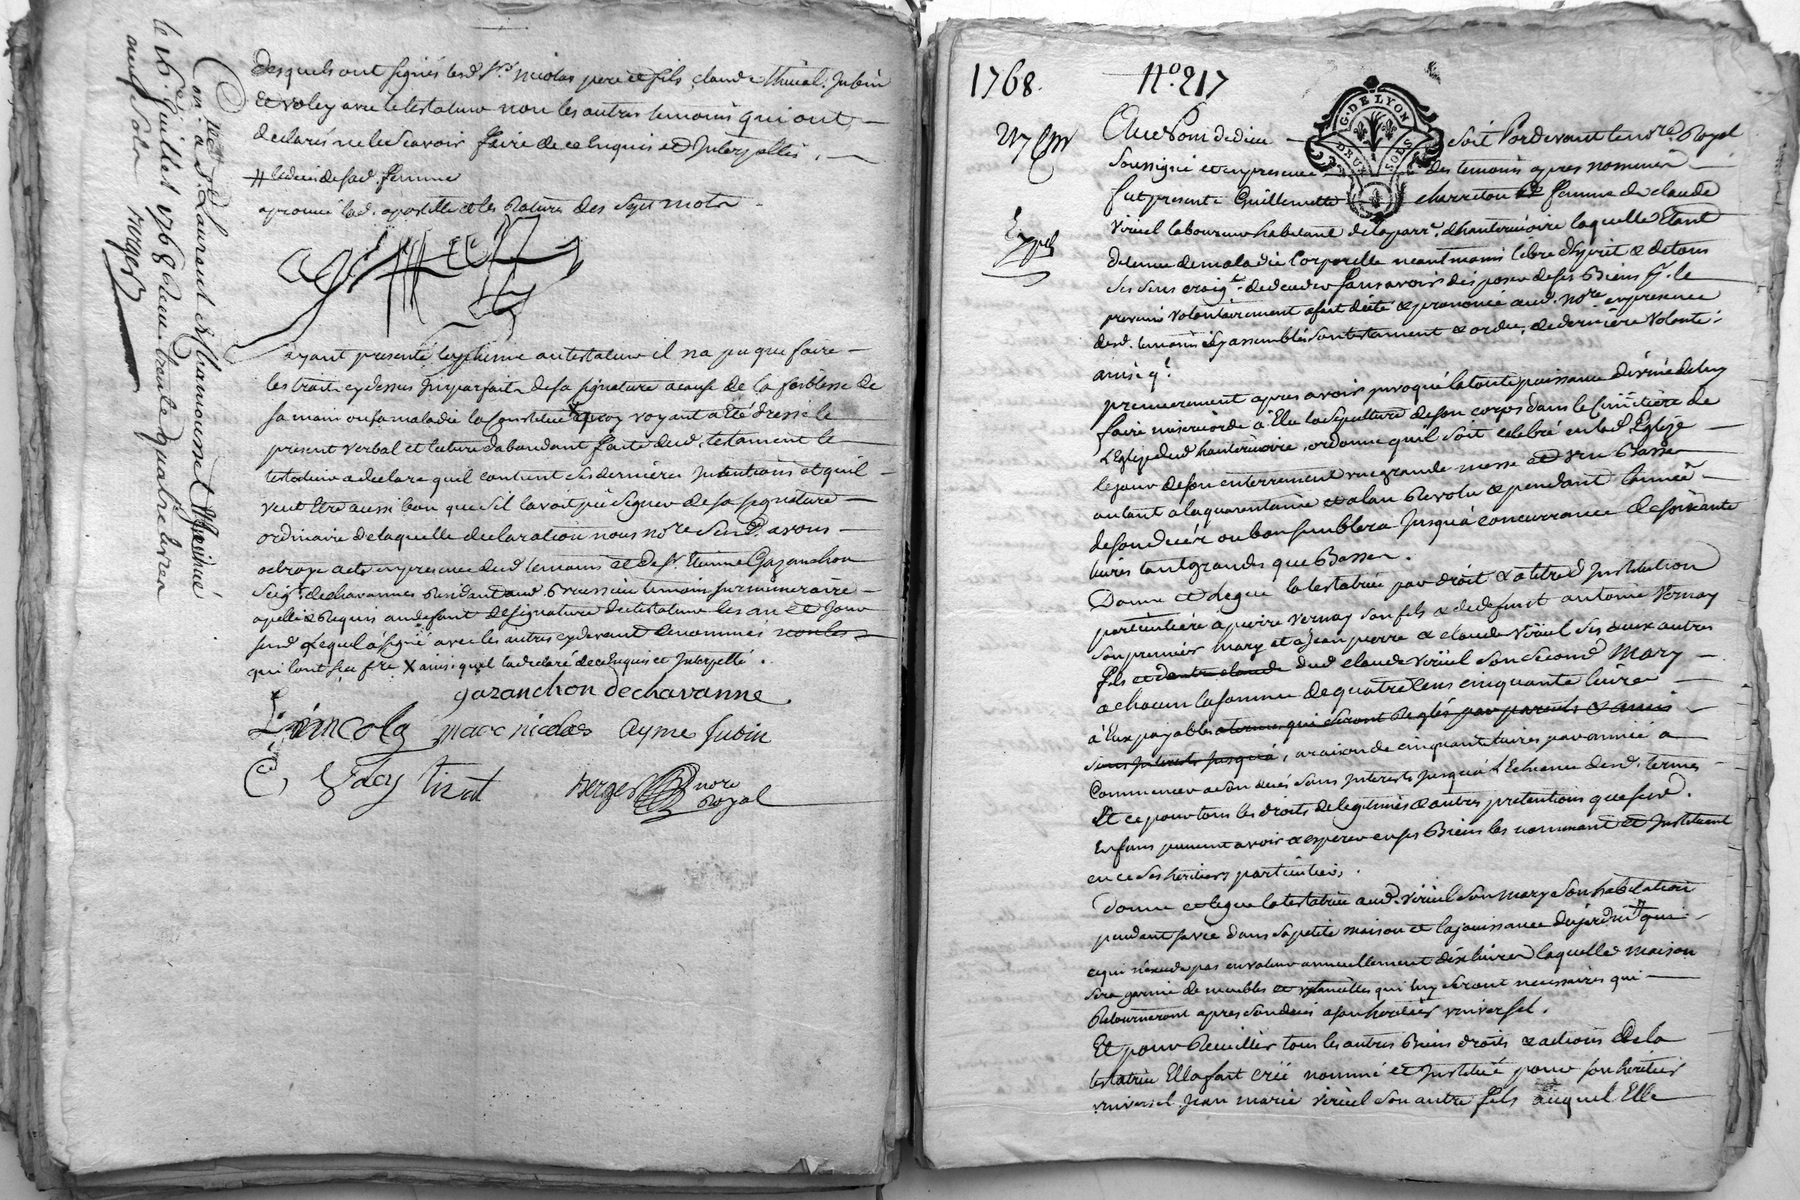 desquels ont signés lesd. Srs. nicolas pere et fils, claude thinal, Jubin
et voley avec le testateur non les autres temoins qui ont
declarés ne le scavoir faire de ce Enquis et Interpellés.
# le deces de sad. femme
aprouvé lad. apostille et les Ratures des sept mots
ayant presenté la plume au testateur il na pu que faire
les traits cy dessus Imparfaits de sa signature a cause de la foiblesse de
sa main ou sa maladie la Constitué voyant a Eté dressé le
present verbal et lecture d'abondant faite dud. testament le
testateur a declaré quil contient ses dernieres Intentions et quil
veut Etre aussi bon que sil lavoit pû signer de sa signature
ordinaire de laquelle declaration nous nore. Sousd. avons
octroyé acte en presence desd. temoins et de Sr. Etienne Gazanchon
Seigr. de chavannes Residant aud. temoin surnumeraire
apellé & Requis au defaut de signature du testateur les an et Jour
susd. Lequel a signé avec les autres cy devant denommés non les
qui lont sçu fre X ainsi quil la declaré de ce Enquis et Interpellé.
gazanchon dechavanne
nicolas marc nicolas ayme Jubin
Voley tinat Berger nore Royal
Con. a St. Laurent de Chamousset
le 16e. Juillet 1768 Reçu trente quatre livres
neuf sols Berger
1768. No. 217
G. DE LYON
DEUX SOLS
Au Nom de dieu soit Pardevant le nore. Royal
soussigné et en presence des temoins apres nommés
fut presente Guillemette charreton femme de claude
Viriel laboureur habitant de la parr. d'hauterivoire laquelle Etant
detenue de maladie Corporelle neantmoins libre d'Esprit & de tous
ses sens craigt. de deceder sans avoir disposé de ses Biens p. le
present volontairement a fait dicté & prononcé aud. nore. en presence
desd. temoins icy assemblés son testament & ordce. de derniere volonté
ainsi q.
premierement apres avoir Invoqué la toute puissance divine de luy
faire misericorde a Elu la sepulture de son corps dans le cimitière de
L'Eglise dud. hauterivoire, ordonne qu'il soit celebré en lad. Eglise
le jour de son enterrement une grande messe et une Basse
autant a la quarantaine et a l'an Revolu & pendant l'année
de son decés ou bon semblera Jusqu'a concurrance de soixante
livres tant grandes que Basses.
Donne et Legue la testatrice par droit & a titre d'Institution
particuliere a pierre Vernay son fils & de deffunt antoine Vernay
son premier Mary et a Jean pierre & claude Viriel ses deux autres
fils et dentre claude dud. claude Viriel son second Mary
a chacun la somme de quatre Cens cinquante livres
à Eux payables a termes qui seront Reglés par parents & amis
sans Interests Jusqu'a, a raison de cinquante livres par année a
Commencer a son decés sans Interests Jusqu'a L'Echeance desd. termes
Et ce pour tous les droits de legitimes & autres pretentions que sesd.
Enfans peuvent avoir & esperer en ses Biens les nommant et Instituant
en ce ses heritiers particuliers.
Donne et legue la testatrice aud. Viriel son mary son habitation
pendant sa vie dans sa petite maison et la jouissance du jardin qui
ce qui n'excede pas en valeur annuellement dix livres laquelle maison
sera garnie de meubles et ustancilles qui luy seront necessaires qui
Retourneront apres son decès a son heritier universel.
Et pour Recuillir tous les autres Biens droits & actions de la
testatrice Elle a fait créé nommé et Institué pour son heritier
universel Jean marie Viriel son autre fils auquel Elle